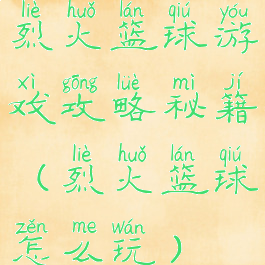 liè huǒ lán qiú yóu
烈火篮球游
xì gōng lüè mì jí
戏攻略秘籍
liè huǒ lán qiú
（烈火篮球
zěn me wán
怎么玩）